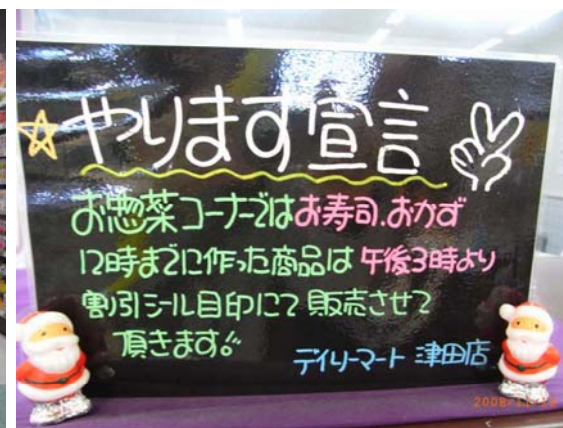 やります宣言
お惣菜コーナーではお寿司.おかず
12時までに作った商品は 午後3時より
割引シール目印にて 販売させて
頂きます。
デイリーマート 津田店